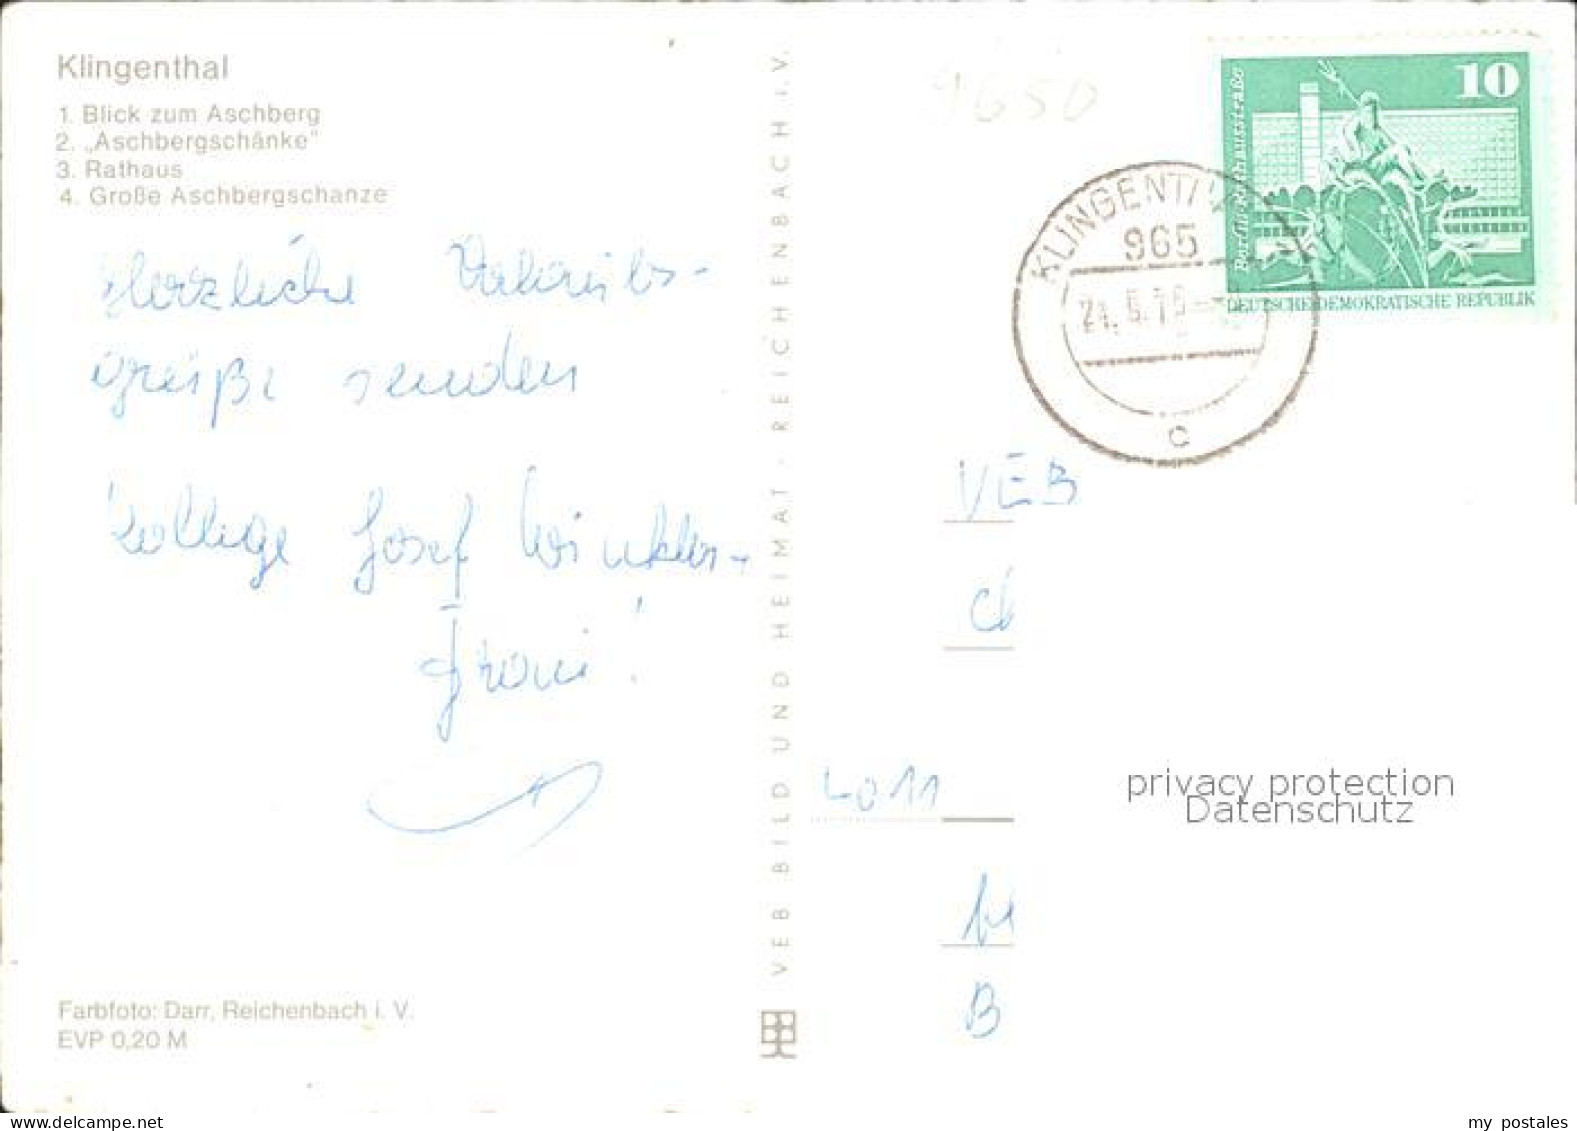 Klingenthal
1. Blick zum Aschberg
2. „Aschbergschänke"
3. Rathaus
4. Große Aschbergschanze
Herzliche Urlaubs-
grüße senden
Kollege Josef Winkler-
!
Farbfoto: Darr, Reichenbach i. V.
EVP 0,20 M
VEB BILD UND HEIMAT · REICHENBACH i. V.
9650
10
Berlin-Rathausstraße
DEUTSCHE DEMOKRATISCHE REPUBLIK
965
c
VEB
4011
B
privacy protection
Datenschutz
my postales